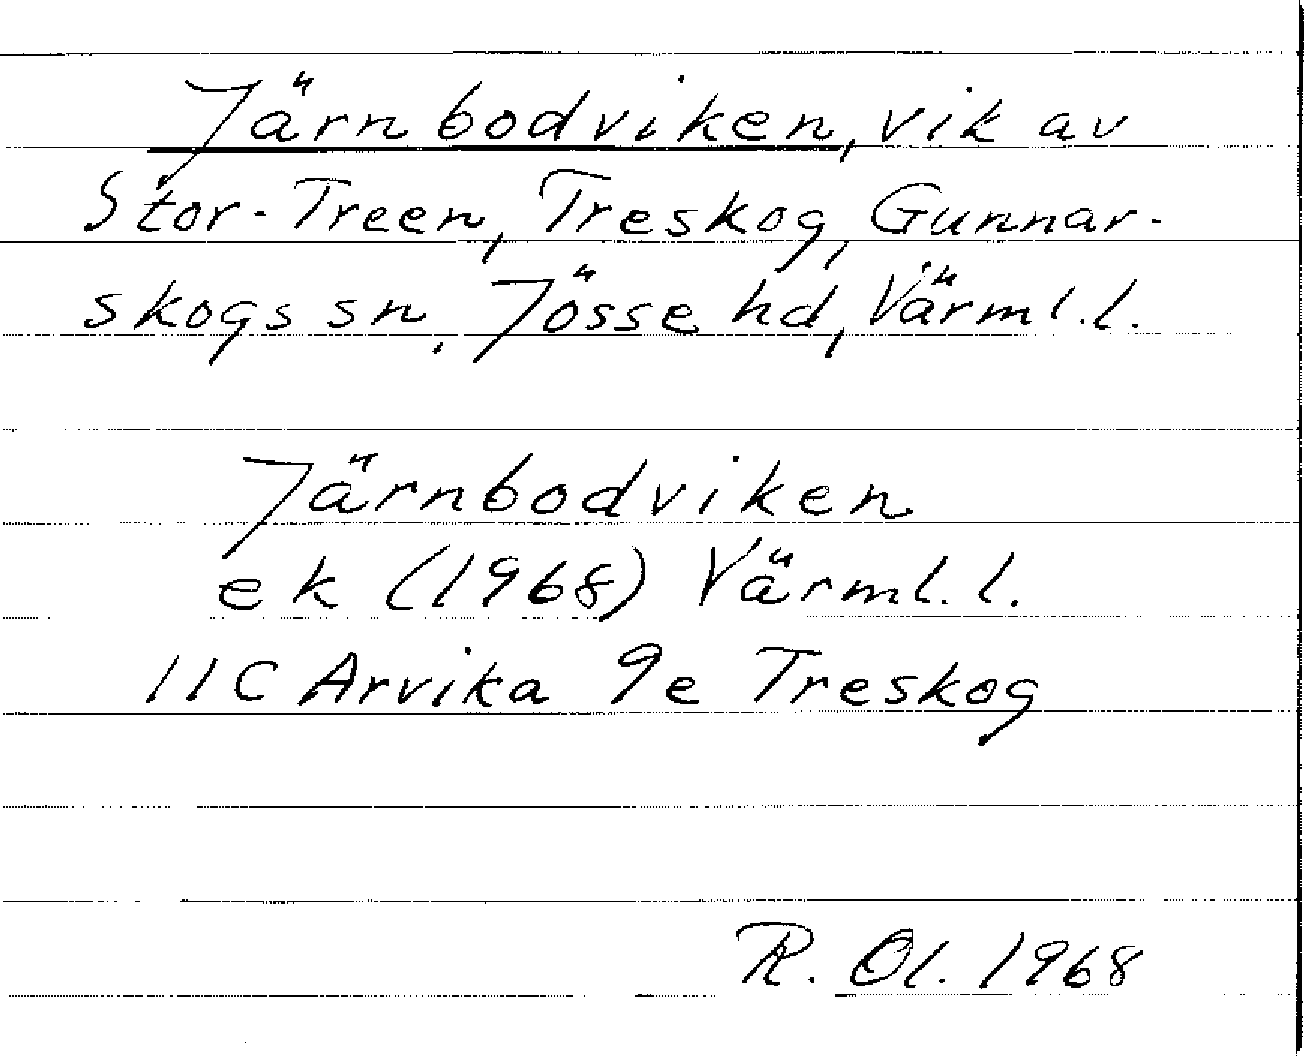 Järnbodviken, vik av
Stor-Treen, Treskog, Gunnar-
skogs sn, Jösse hd, Värml.l.
Järnbodviken
ek (1968) Värml.l.
11C Arvika 9e Treskog
R. Ol. 1968